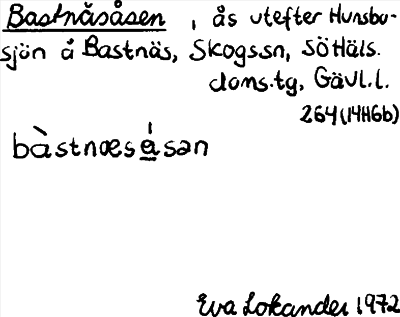 Bastnäsåsen, ås utefter Hunsbo-
sjön å Bastnäs, Skogs sn, SöHäls.
doms.tg, Gävl.l.
264 (14H6b)
bàstnæsåsən
Eva Lokander 1972